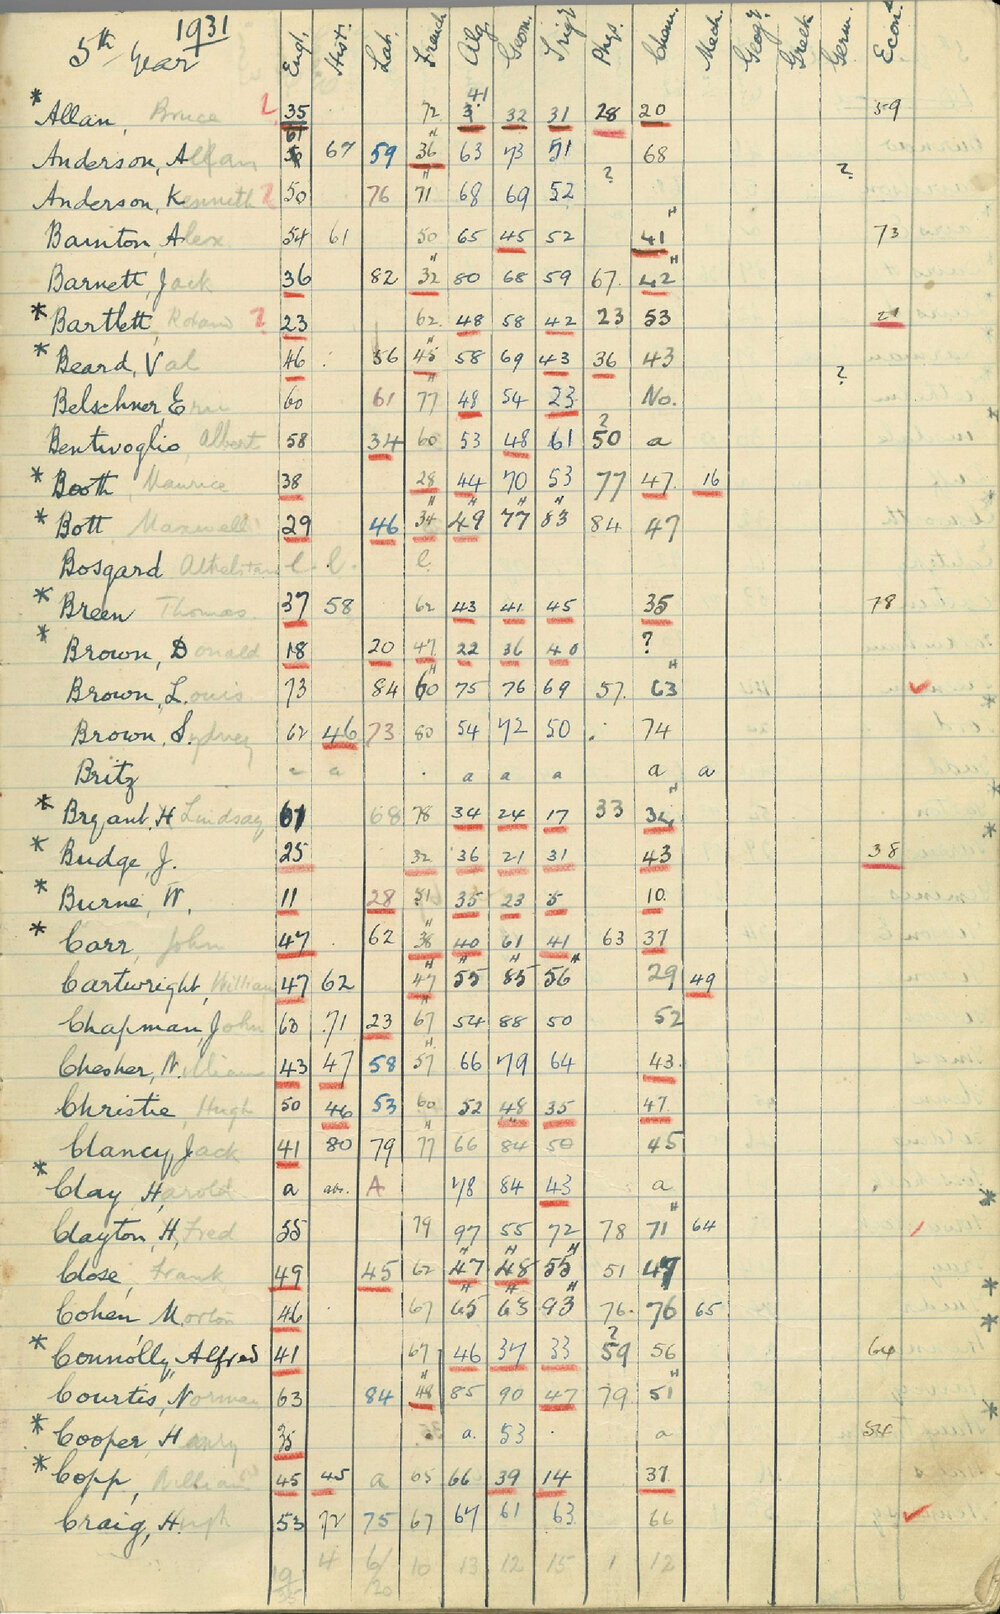 1931
5th Year Engl. Hist. Lat. French Alg. Geom. Trig. Phys. Chem. Mech. Geog. Greek Germ. Econ.
41
* Allan, Bruce ? 35 72 3 32 31 28 20 59
61
Anderson, Allan 67 59 36 63 73 51 68
Anderson, Kenneth ? 50 76 71 68 69 52 ? ?
Bainton, Alex 54 61 50 65 45 52 41 73
Barnett, Jack 36 82 32 80 68 59 67. 42
* Bartlett, Roland ? 23 62. 48 58 42 23 53 21
* Beard, Val 46 56 45 58 69 43 36 43
Belschner, Eric 60 61 77 48 54 23 No. ?
Bentivoglio, Albert 58 34 60 53 48 61 ? 50 a
* Booth, Maurice 38 28 44 70 53 77 47. 16
* Bott Maxwell 29 46 34 49 77 83 84 47
Bosgard Athelstan l. l. l.
* Breen Thomas. 37 58 62 43 41 45 35 78
* Brown, Donald 18 20 47 22 36 40 ?
Brown, Louis 73 84 60 75 76 69 57. 63
Brown, Sydney 62 46 73 80 54 72 50 74
Britz a a a a a a
* Bryant, H Lindsay 61 68 78 34 24 17 33 34
* Budge, J. 25 32 36 21 31 43 38
* Burne, W. 11 28 51 35 23 5 10.
* Carr, John 47 62 38 40 61 41 63 37
Cartwright, William 47 62 47 55 85 56 29 49
Chapman, John 60 71 23 67 54 88 50 52
Chesher, William 43 47 58 57 66 79 64 43.
Christie, Hugh 50 46 53 60 52 48 35 47.
Clancy, Jack 41 80 79 77 66 84 50 45
* Clay, Harold a abs. A 78 84 43 a
Clayton, H, Fred 55 79 97 55 72 78 71 64
Close, Frank 49 45 62 47 48 55 51 47
Cohen Morton 46 67 65 63 93 76. 76 65
* Connolly, Alfred 41 67 46 37 33 ? 59 56 64
Courtis, Norman 63 84 48 85 90 47 79 51
* Cooper, Henry 35 a. 53 a 54
* Copp, William 45 45 a 65 66 39 14 37
Craig, Hugh 53 72 75 67 67 61 63 66
19 4 6/20 10 13 12 15 1 12